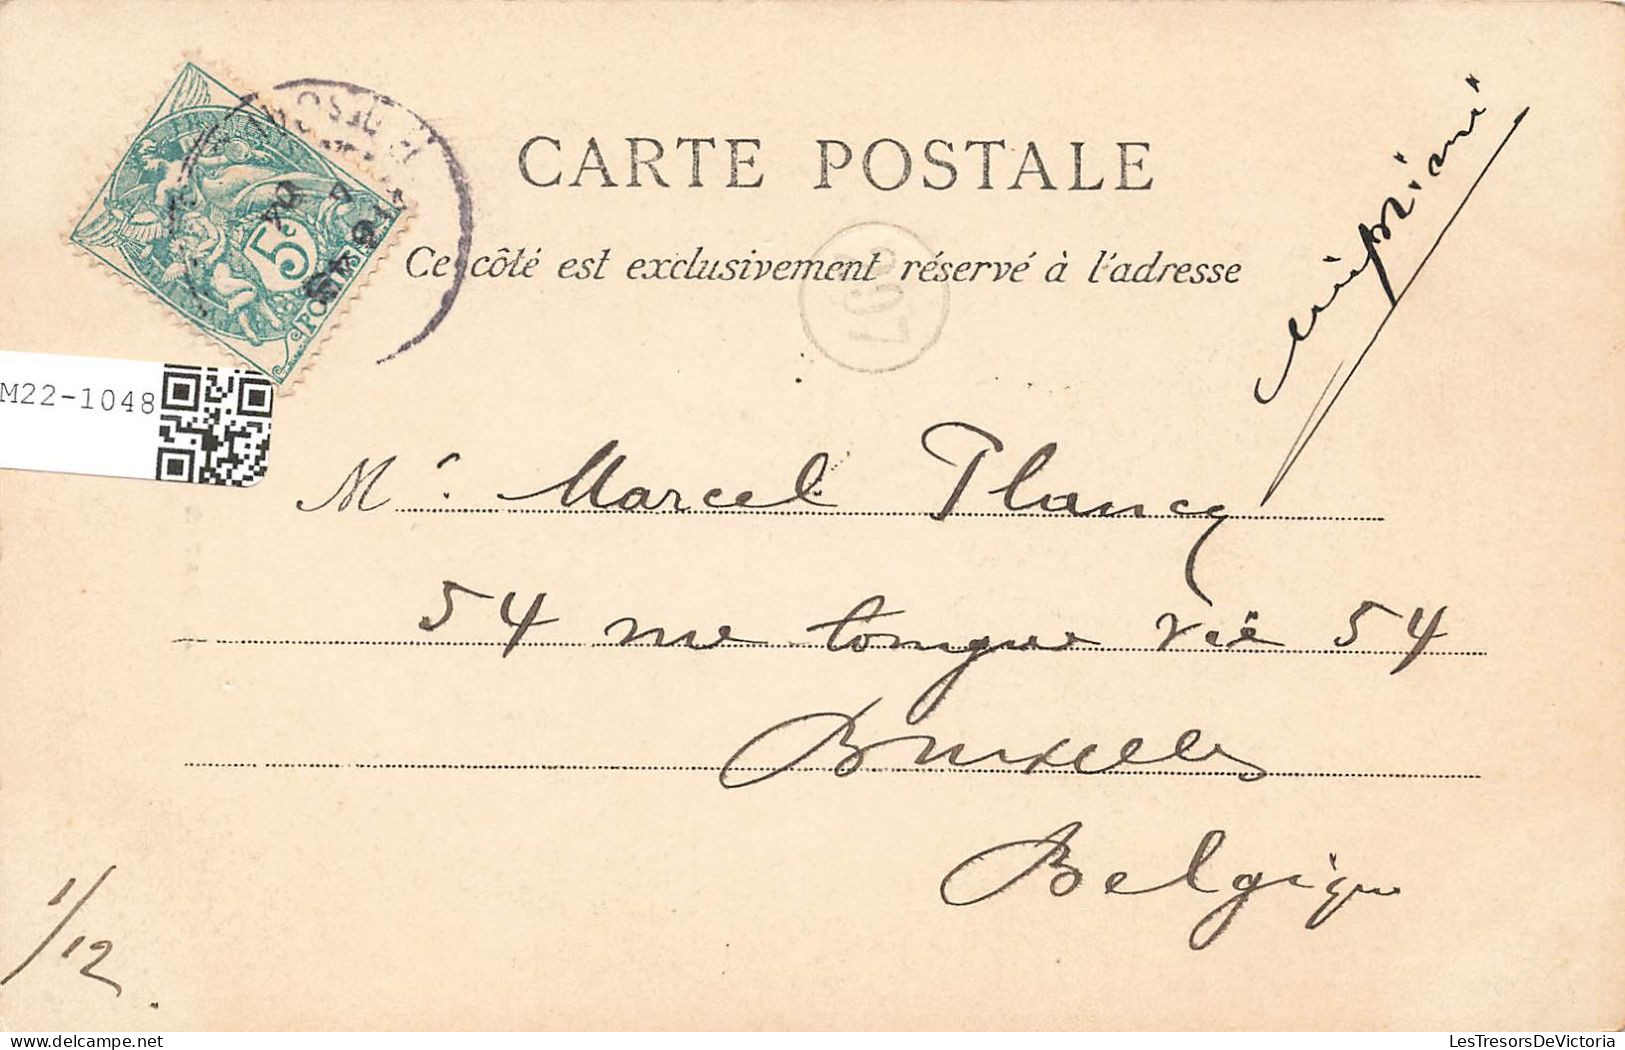 CARTE POSTALE
Ce côté est exclusivement réservé à l'adresse
997
5c
M22-1048
Mr. Marcel Plancq
54 rue longue vie 54
Bruxelles
Belgique
1/12.
LesTresorsDeVictoria